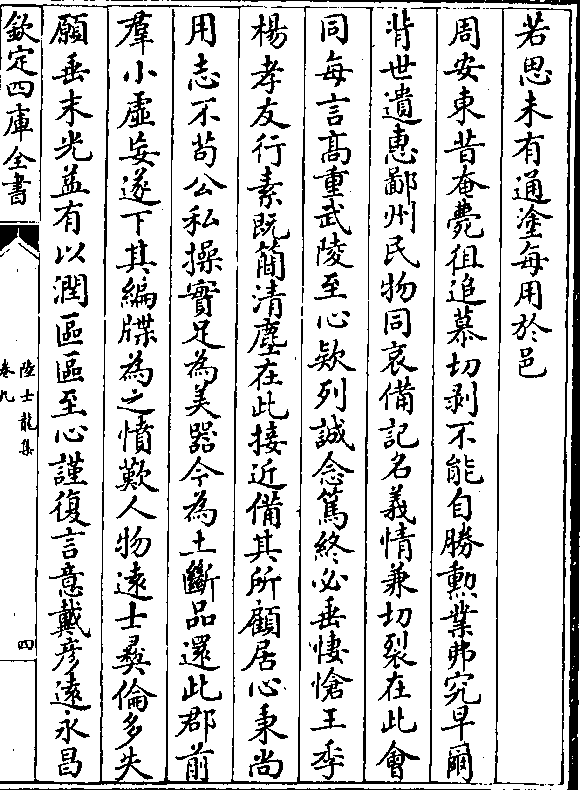 若思未有通塗每用於邑
周安東昔奄薨徂追慕切剥不能自勝勲業弗究早爾
背世遺惠鄙州民物同哀備記名義情兼切裂在此會
同每言髙重武陵至心欵列誠念篤終必垂悽愴王季
楊孝友行素既簡清塵在此接近備其所顧居心秉尚
用志不苟公私操實足為美器今為土斷品還此郡前
羣小虚妄遂下其編牒為之憤歎人物遠士彛倫多失
願垂末光益有以潤區區至心謹復言意戴彦遠永昌
欽定四庫全書
陸士龍集
卷九
四